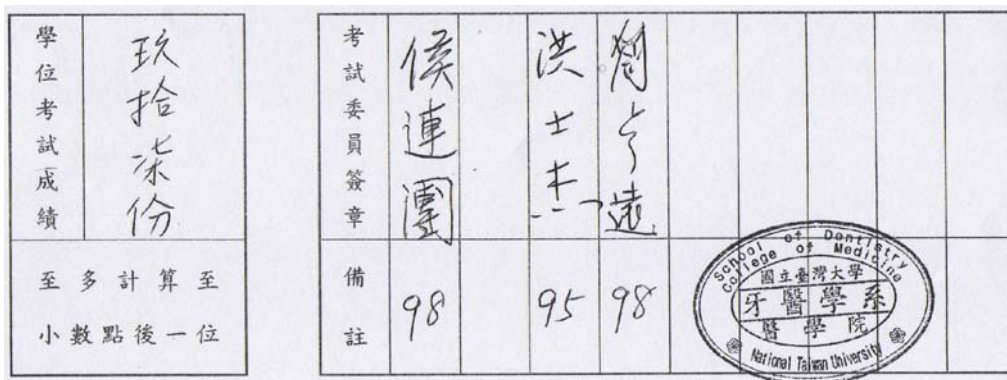 學位考試成績
玖拾柒份
至多計算至
小數點後一位
考試委員簽章
侯連團
洪士杰
遠
備註
98
95
98
School of Dentistry
College of Medicine
國立臺灣大學
牙醫學系
醫學院
National Taiwan University